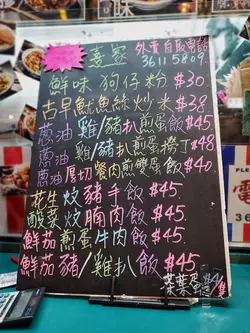 外賣自取電話
36115809
鮮味狗仔粉 $30
古早魷魚絲炒米 $38
蔥油雞/豬扒煎蛋飯 $45
蔥油雞/豬扒煎蛋撈丁 $48
蔥油厚切餐肉煎雙蛋飯 $40
花生炆豬手飯 $45
酸菜炆腩肉飯 $45
鮮茄煎蛋牛肉飯 $45
鮮茄豬/雞扒飯 $45
茶葉蛋 $4/隻